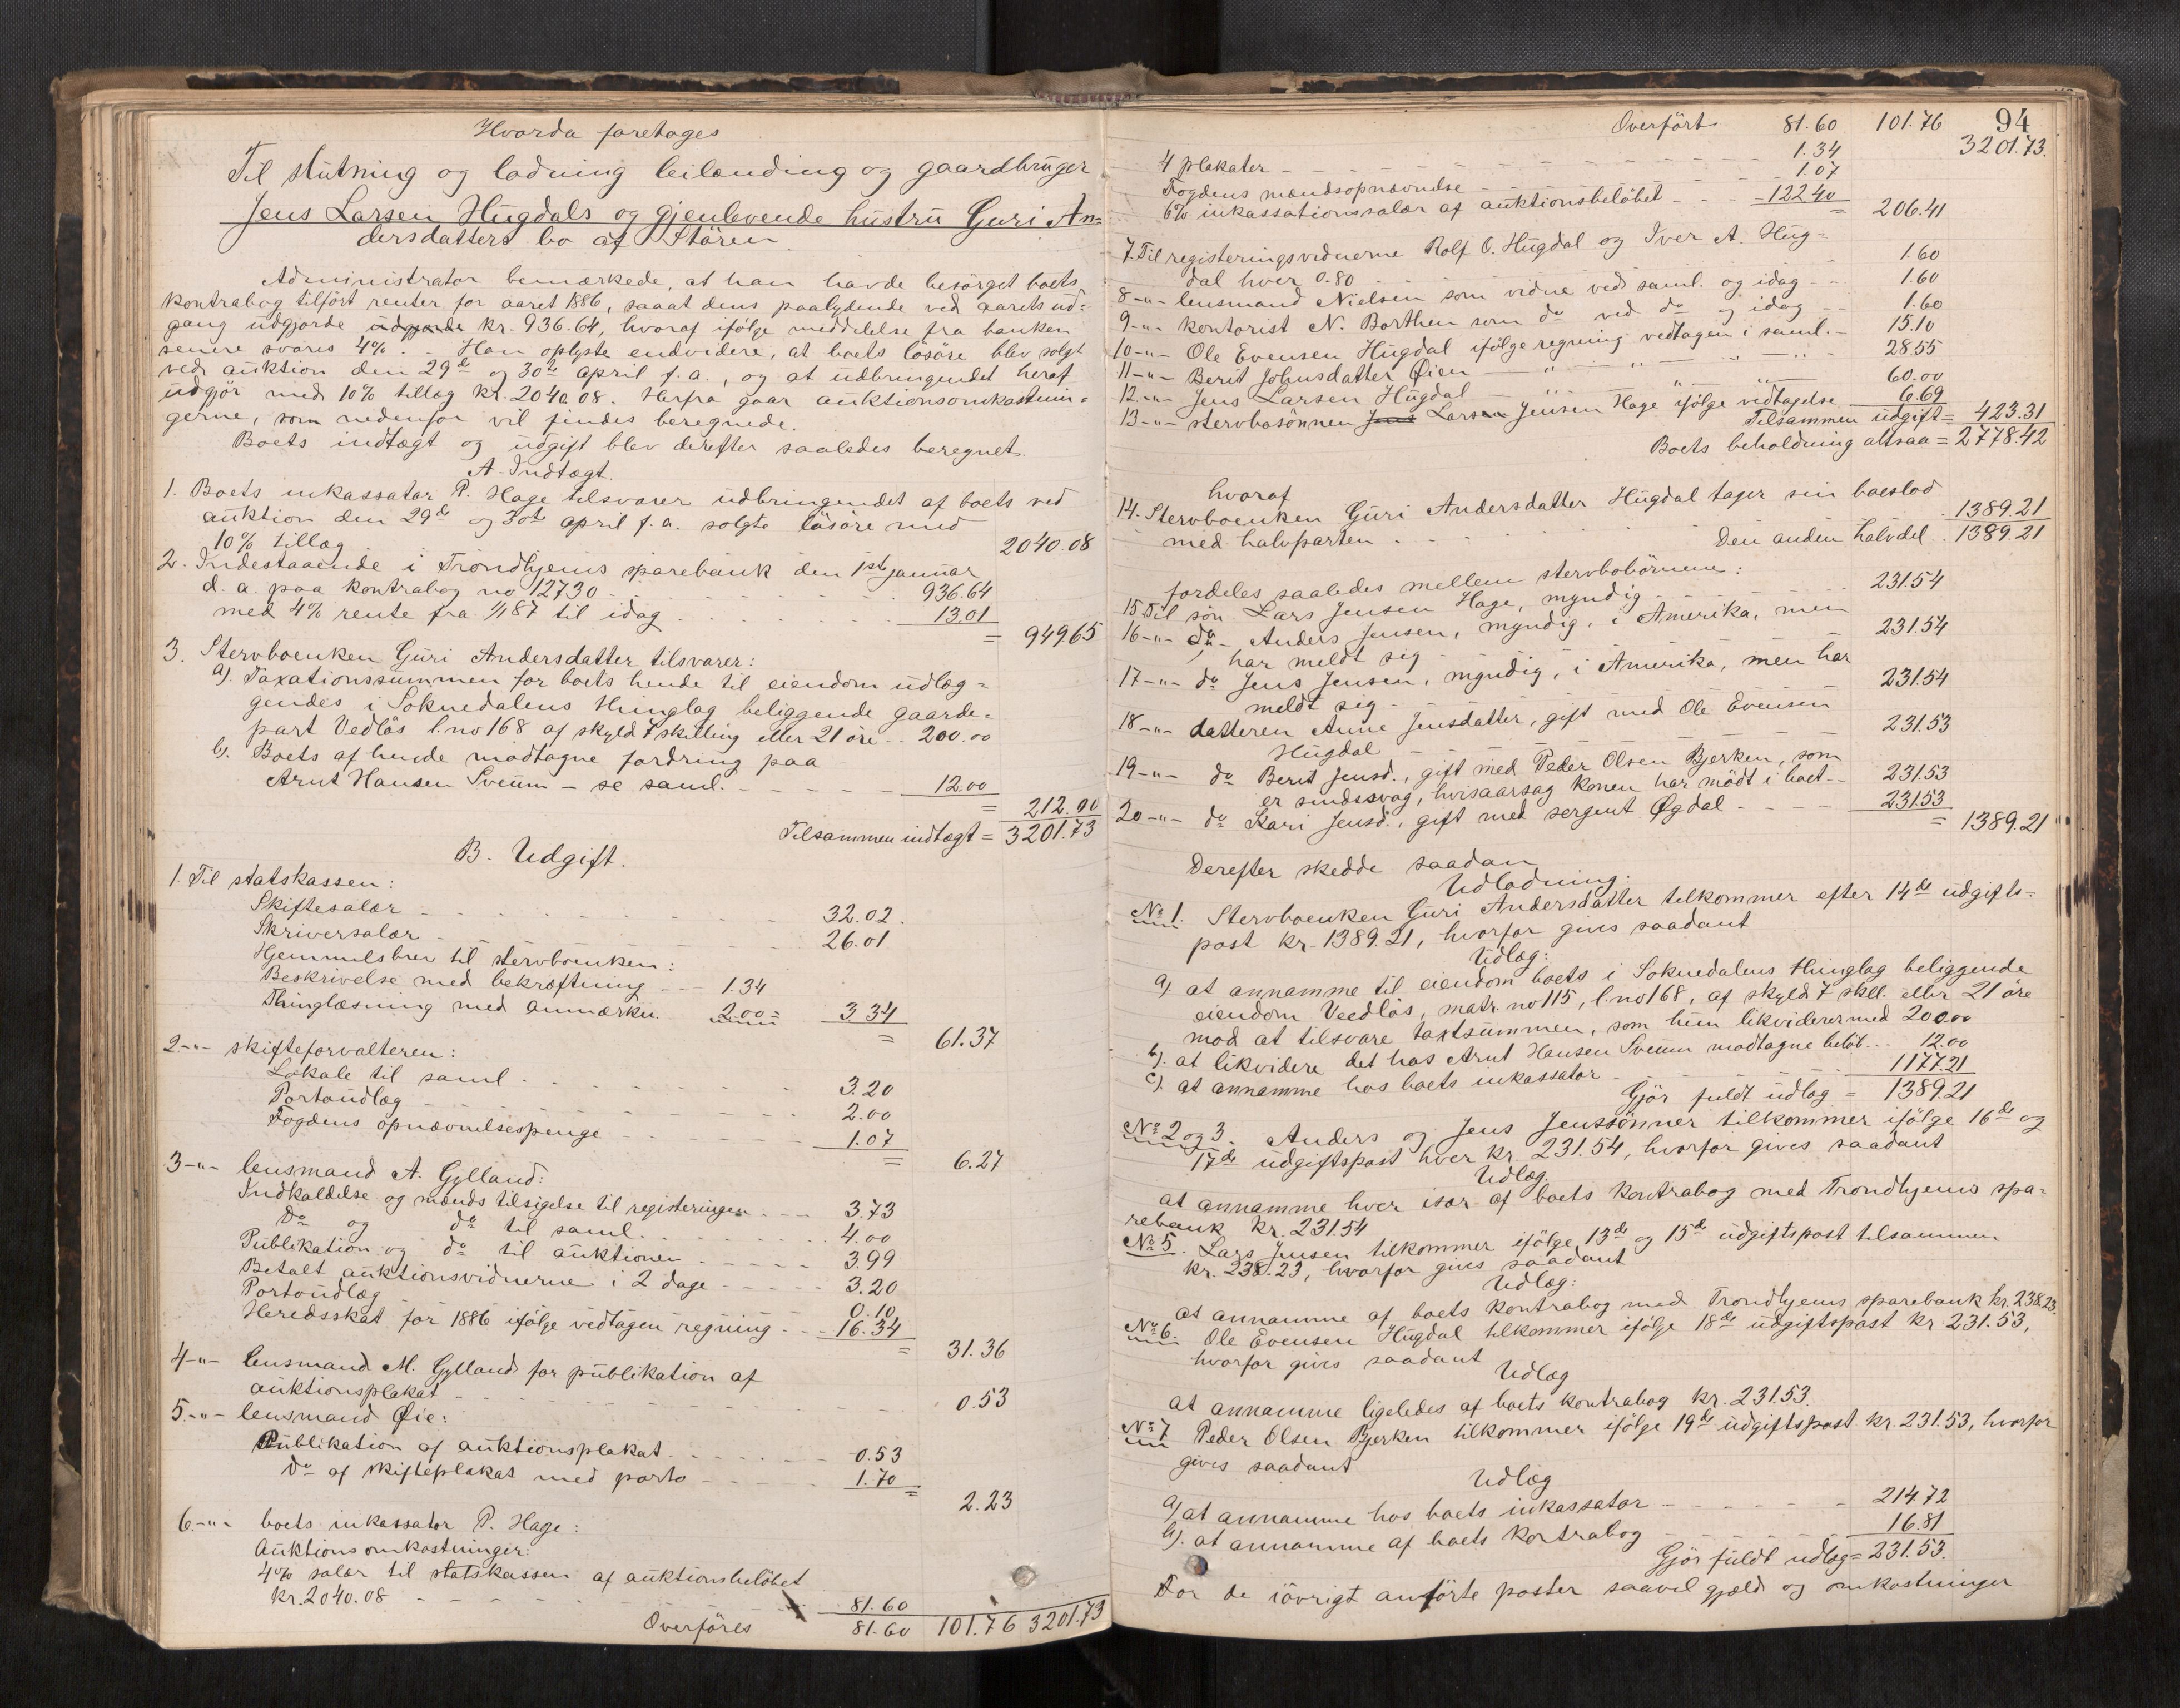 Hvorda foretoges
Til slutning og lodning leilending og gaardbruger
Jens Larsen Hugdals og gjenlevende hustru Guri An=
dersdatters bo af Stören.
Administrator bemærkede, at han havde besörget boets
kontrabog tilfört renter for aaret 1886, saaat dens paalydende ved aarets ud=
gang udgjorde udgjorde kr. 936.64, hvoraf ifölge meddelelse fra banken
senere svares 4%. – Han oplyste endvidere, at boets lösöre blev solgt
ved auktion den 29de og 30te april f.a., og at udbringendet heraf
udgjör med 10% tillæg kr. 2040.08. Herfra gaar auktionsomkostnin=
gerne, som nedenfor vil findes beregnede.
Boets indtægt og udgift blev derefter saaledes beregnet.
A. Indtægt.
1. Boets inkassator P. Hage tilsvarer udbringendet af boets ved
auktion den 29de og 30te april f.a. solgte lösöre med
10% tillæg 2040.08
2. Indestaaende i Trondhjems sparebank den 1ste januar
d.a. paa kontrabog no 12730 . . . 936.64
med 4% rente fra 1/1 87 til idag . . . 13.01
= 949.65
3. Stervboenken Guri Andersdatter tilsvarer:
a). Taxationssummen for boets hende til eiendom udlæg=
gendes i Soknedalens thinglag beliggende gaarde=
part Vedlös l.no 168 af skyld 7 skilling eller 21 öre . . 200.00
b). Boets af hende modtagne fordring paa
Arnt Hansen Sveum – se saml. - - - 12.00
= 212.00
Tilsammen indtægt = 3201.73
B. Udgift.
1. Til statskassen:
Skiftesalær - - - 32.02.
Skriversalær - - - 26.01
Hjemmelsbrev til stervboenken:
Beskrivelse med bekræftning - - 1.34
Thinglæsning med anmærkn. 2.00 = 3.34
= 61.37
2.-"- skifteforvalteren:
Lokale til saml. . . . 3.20
Portoudlæg - - - 2.00
Fogdens opnævnelsespenge - - - 1.07
= 6.27
3-"- lensmand A. Gylland:
Indkaldelse og mænds tilsigelse til registeringen . - - 3.73
Do og do til saml. . . . 4.00
Publikation og do til auktionen - - - 3.99
Betalt auktionsvidnerne i 2 dage - - - 3.20
Portoudlæg - - - 0.10
Heredsskat for 1886 ifölge vedtagen regning - - - 16.34
= 31.36
4-"- lensmand M. Gylland for publikation af
auktionsplakat - - - 0.53
5.-"- lensmand Øie:
Publikation af auktionsplakat - - - 0.53
Do af skifteplakat med porto - - - 1.70
= 2.23
6.-"- boets inkassator P. Hage:
Auktionsomkostninger:
4% salær til statskassen af auktionsbelöbet
kr. 2040.08 - - - 81.60
Overföres 81.60 101.76 3201.73
94
Overfört 81.60 101.76 3201.73.
4 plakater - - - 1.34
Fogdens mændsopnævnelse - - - 1.07
6% inkassationssalær af auktionsbelöbet - - - 122.40
= 206.41
7. Til registeringsvidnerne Rolf O. Hugdal og Iver A. Hug=
dal hver 0.80 1.60
8-"- lensmand Nielsen som vidne ved saml. og idag - - 1.60
9-"- kontorist N. Borthen som do ved do og idag - - 1.60
10-"- Ole Evensen Hugdal ifölge regning vedtagen i saml. - 15.10
11-"- Berit Johnsdatter Øien — " — " — " — " — 28.55
12.-"- Jens Larsen Hugdal — " — " — " — 60.00
13-"- stervbosönnen Jens Larsen Jensen Hage ifölge vedtagelse 6.69
Tilsammen udgift = 423.31
Boets beholdning altsaa = 2778.42
hvoraf
14. Stervboenken Guri Andersdatter Hugdal tager sin boeslod
med halvparten . . . 1389.21
Den anden halvdel . . 1389.21
fordeles saaledes mellem stervbobörnene:
15 Til sön Lars Jensen Hage, myndig - 231.54
16-"- do - Anders Jensen, myndig, i Amerika, men
har meldt sig - 231.54
17-"- do Jens Jensen, myndig, i Amerika, men har
meldt sig - 231.54
18-"- datteren Anne Jensdatter, gift med Ole Evensen
Hugdal - - - 231.53
19-"- do Berit Jensd., gift med Peder Olsen Bjerken, som
er sindssvag, hvisaarsag konen har mödt i boet - - 231.53
20-"- do Kari Jensd., gift med sergent Øgdal - - - 231.53
= 1389.21
Derefter skedde saadan
Udlodning:
No 1. Stervboenken Guri Andersdatter tilkommer efter 14de udgifts=
post kr. 1389.21, hvorfor gives saadant
Udlæg:
a). at annamme til eiendom boets i Soknedalens thinglag beliggende
eiendom Veedlös, matr. no 115, l.no 168, af skyld 7 skll. eller 21 öre
mod at tilsvare taxtsummen, som hun likviderer med 200.00
b). at likvidere det hos Arnt Hansen Sveum modtagne belöb . . 12.00
c). at annamme hos boets inkassator - - - 1177.21
Gjör fuldt udlæg = 1389.21
No 2 og 3. Anders og Jens Jenssönner tilkommer ifölge 16de og
17de udgiftspost hver kr. 231.54, hvorfor gives saadant
Udlæg
at annamme hver især af boets kontrabog med Trondhjems spa=
rebank kr. 231.54
No 5. Lars Jensen tilkommer ifölge 13de og 15de udgiftspost tilsammen
kr. 238.23, hvorfor gives saadant
Udlæg:
at annamme af boets kontrabog med Trondhjems sparebank kr. 238.23.
No 6. Ole Evensen Hugdal tilkommer ifölge 18de udgiftspost kr 231.53,
hvorfor gives saadant
Udlæg
at annamme ligeledes af boets kontrabog kr. 231.53.
No 7 Peder Olsen Bjerken tilkommer ifölge 19de udgiftspost kr. 231.53, hvorfor
gives saadant
Udlæg
a) at annamme hos boets inkassator - - - 214.72
b). at annamme af boets kontrabog - - - 16.81
Gjör fuldt udlæg = 231.53.
For de iövrigt anförte poster saavel gjæld og omkostninger